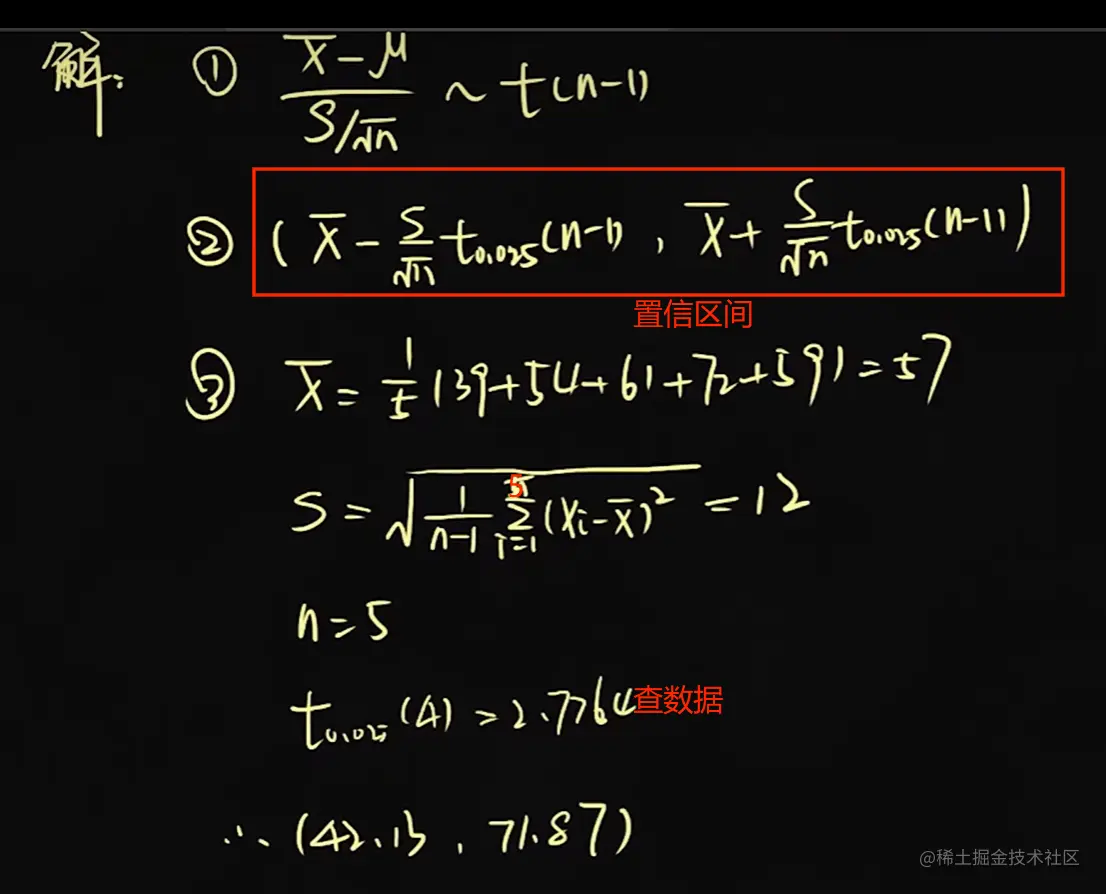 解: ① (X̄-μ)/(S/√n) ~ t(n-1)
② (X̄ - S/√n t₀.₀₂₅(n-1), X̄ + S/√n t₀.₀₂₅(n-1))
置信区间
③ X̄ = 1/5 (39+54+61+72+59) = 57
S = √(1/(n-1) Σᵢ₌₁⁵ (Xᵢ-X̄)²) = 12
n = 5
t₀.₀₂₅(4) = 2.7764 查数据
∴ (42.13, 71.87)
@稀土掘金技术社区